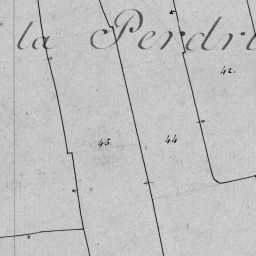 la Perdri
42.
45.
44